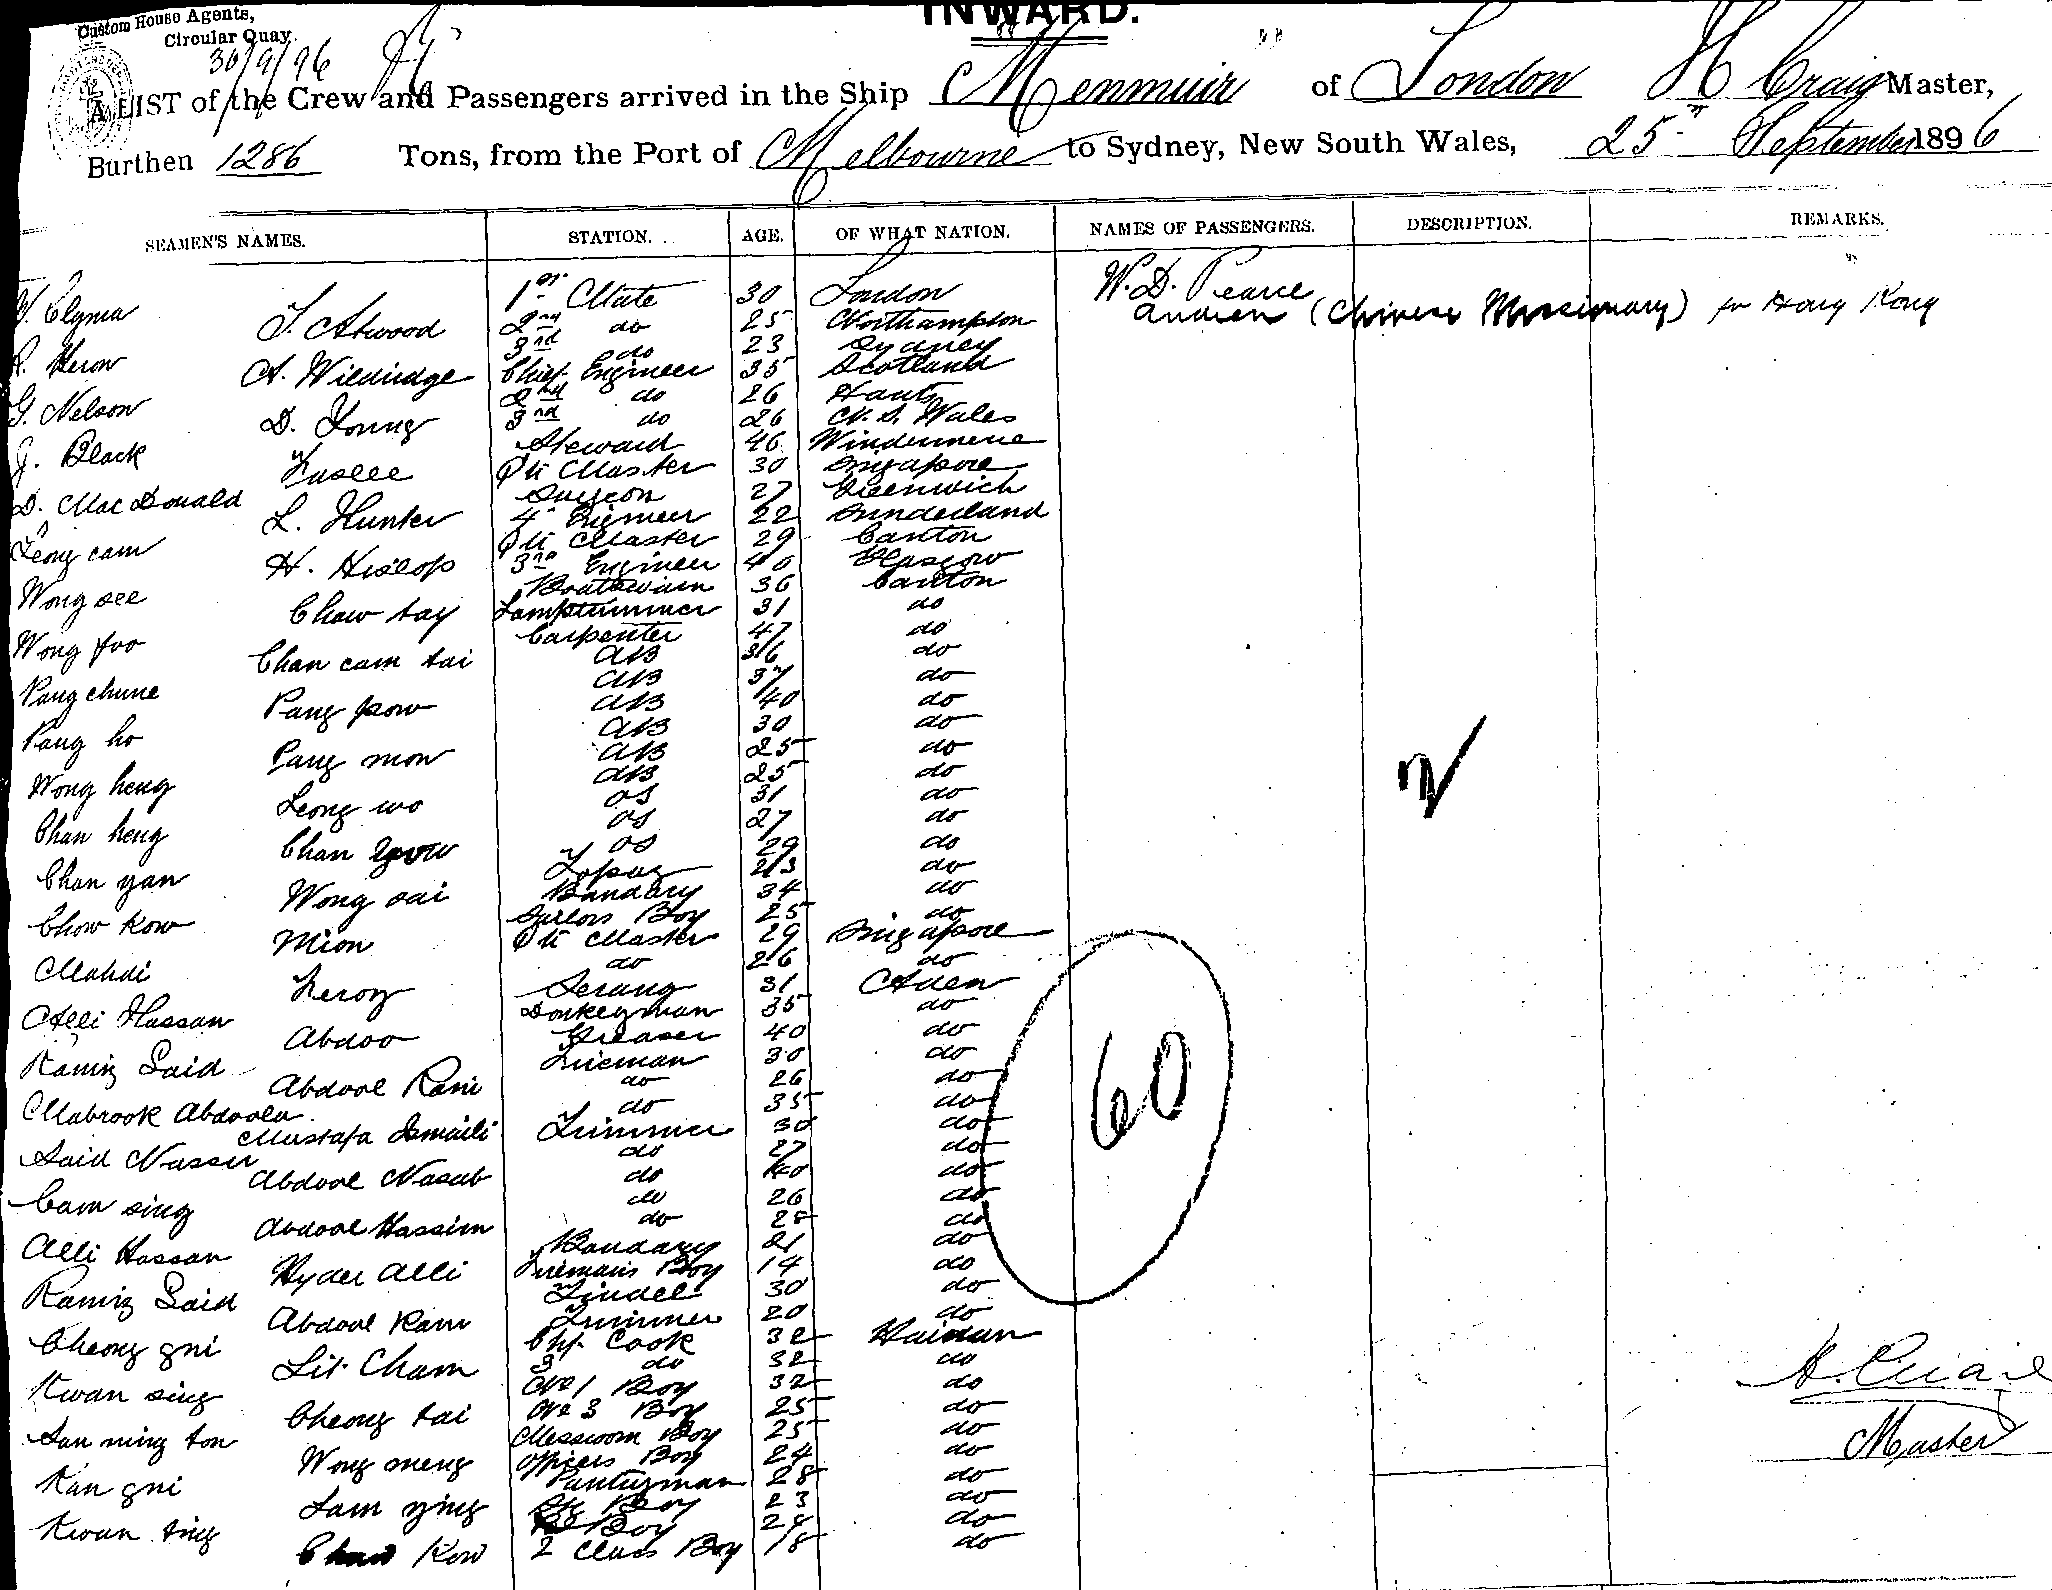 INWARD.
Custom House Agents,
Circular Quay.
30/9/96
A LIST of the Crew and Passengers arrived in the Ship Menmuir of London H Craig Master,
Burthen 1286 Tons, from the Port of Melbourne to Sydney, New South Wales, 25th September 1896
SEAMEN'S NAMES. STATION. AGE. OF WHAT NATION. NAMES OF PASSENGERS. DESCRIPTION. REMARKS.
Clyma 1st Mate 30 London W. D. Pearce
J. Atwood 2nd do 25 Northampton Andrew (Chinese Missionary) for Hong Kong
Heron 3rd do 23 Sydney
A. Wildridge Chief Engineer 35 Scotland
G. Nelson 2nd do 26 Hants
D. Young 3rd do 26 N. S. Wales
J. Black Steward 46 Windermere
Qti Master 30 Singapore
D. MacDonald Surgeon 27 Greenwich
L. Hunter 4th Engineer 22 Sunderland
Leong cam Qti Master 29 Canton
H. Hislop 3rd Engineer 40 Glasgow
Wong see Boatswain 36 Canton
Chaw tay Lamptrimmer 31 do
Wong foo Carpenter 47 do
Chan cam tai AB 36 do
Pang chune AB 37 do
Pang pow AB 40 do
Pang ho AB 30 do
Pang mow AB 25 do
Wong heng AB 25 do
Leong wo OS 31 do
Chan heng OS 27 do
Chan OS 29 do
Chan yan Topaz 23 do
Wong sai Bandary 34 do
Chow Kow Sailors Boy 25 do
Mion Qti Master 29 Singapore
Mahdi do 26 do
Feroz Serang 31 Aden
Alli Hassan Donkeyman 35 do
Abdoo Greaser 40 do
Ramiz Said Fireman 30 do
Abdool Rani do 26 do
Mabrook Abdoola do 35 do
Mustafa Ismaili Trimmer 30 do
Said Nasser do 27 do
Abdool Nasub do 40 do
Cam sing do 26 do
Abdool Hassim do 28 do
Alli Hassan Bandary 21 do
Hyder Alli Firemans Boy 14 do
Ramiz Said Tindel 30 do
Abdool Rani Trimmer 20 do
Cheong gni Chf. Cook 32 Hainan
Lit Cham 3 do 32 do
Kwan sing No 1 Boy 32 do
Cheong tai No 3 Boy 25 do
San ming ton Messroom Boy 25 do
Wong meng Officers Boy 24 do
Kan gni Pantryman 28 do
Lam ying Boy 23 do
Kwan ting Boy 24 do
Kow 2 Class Boy 18 do
2
60
H. Craig
Master